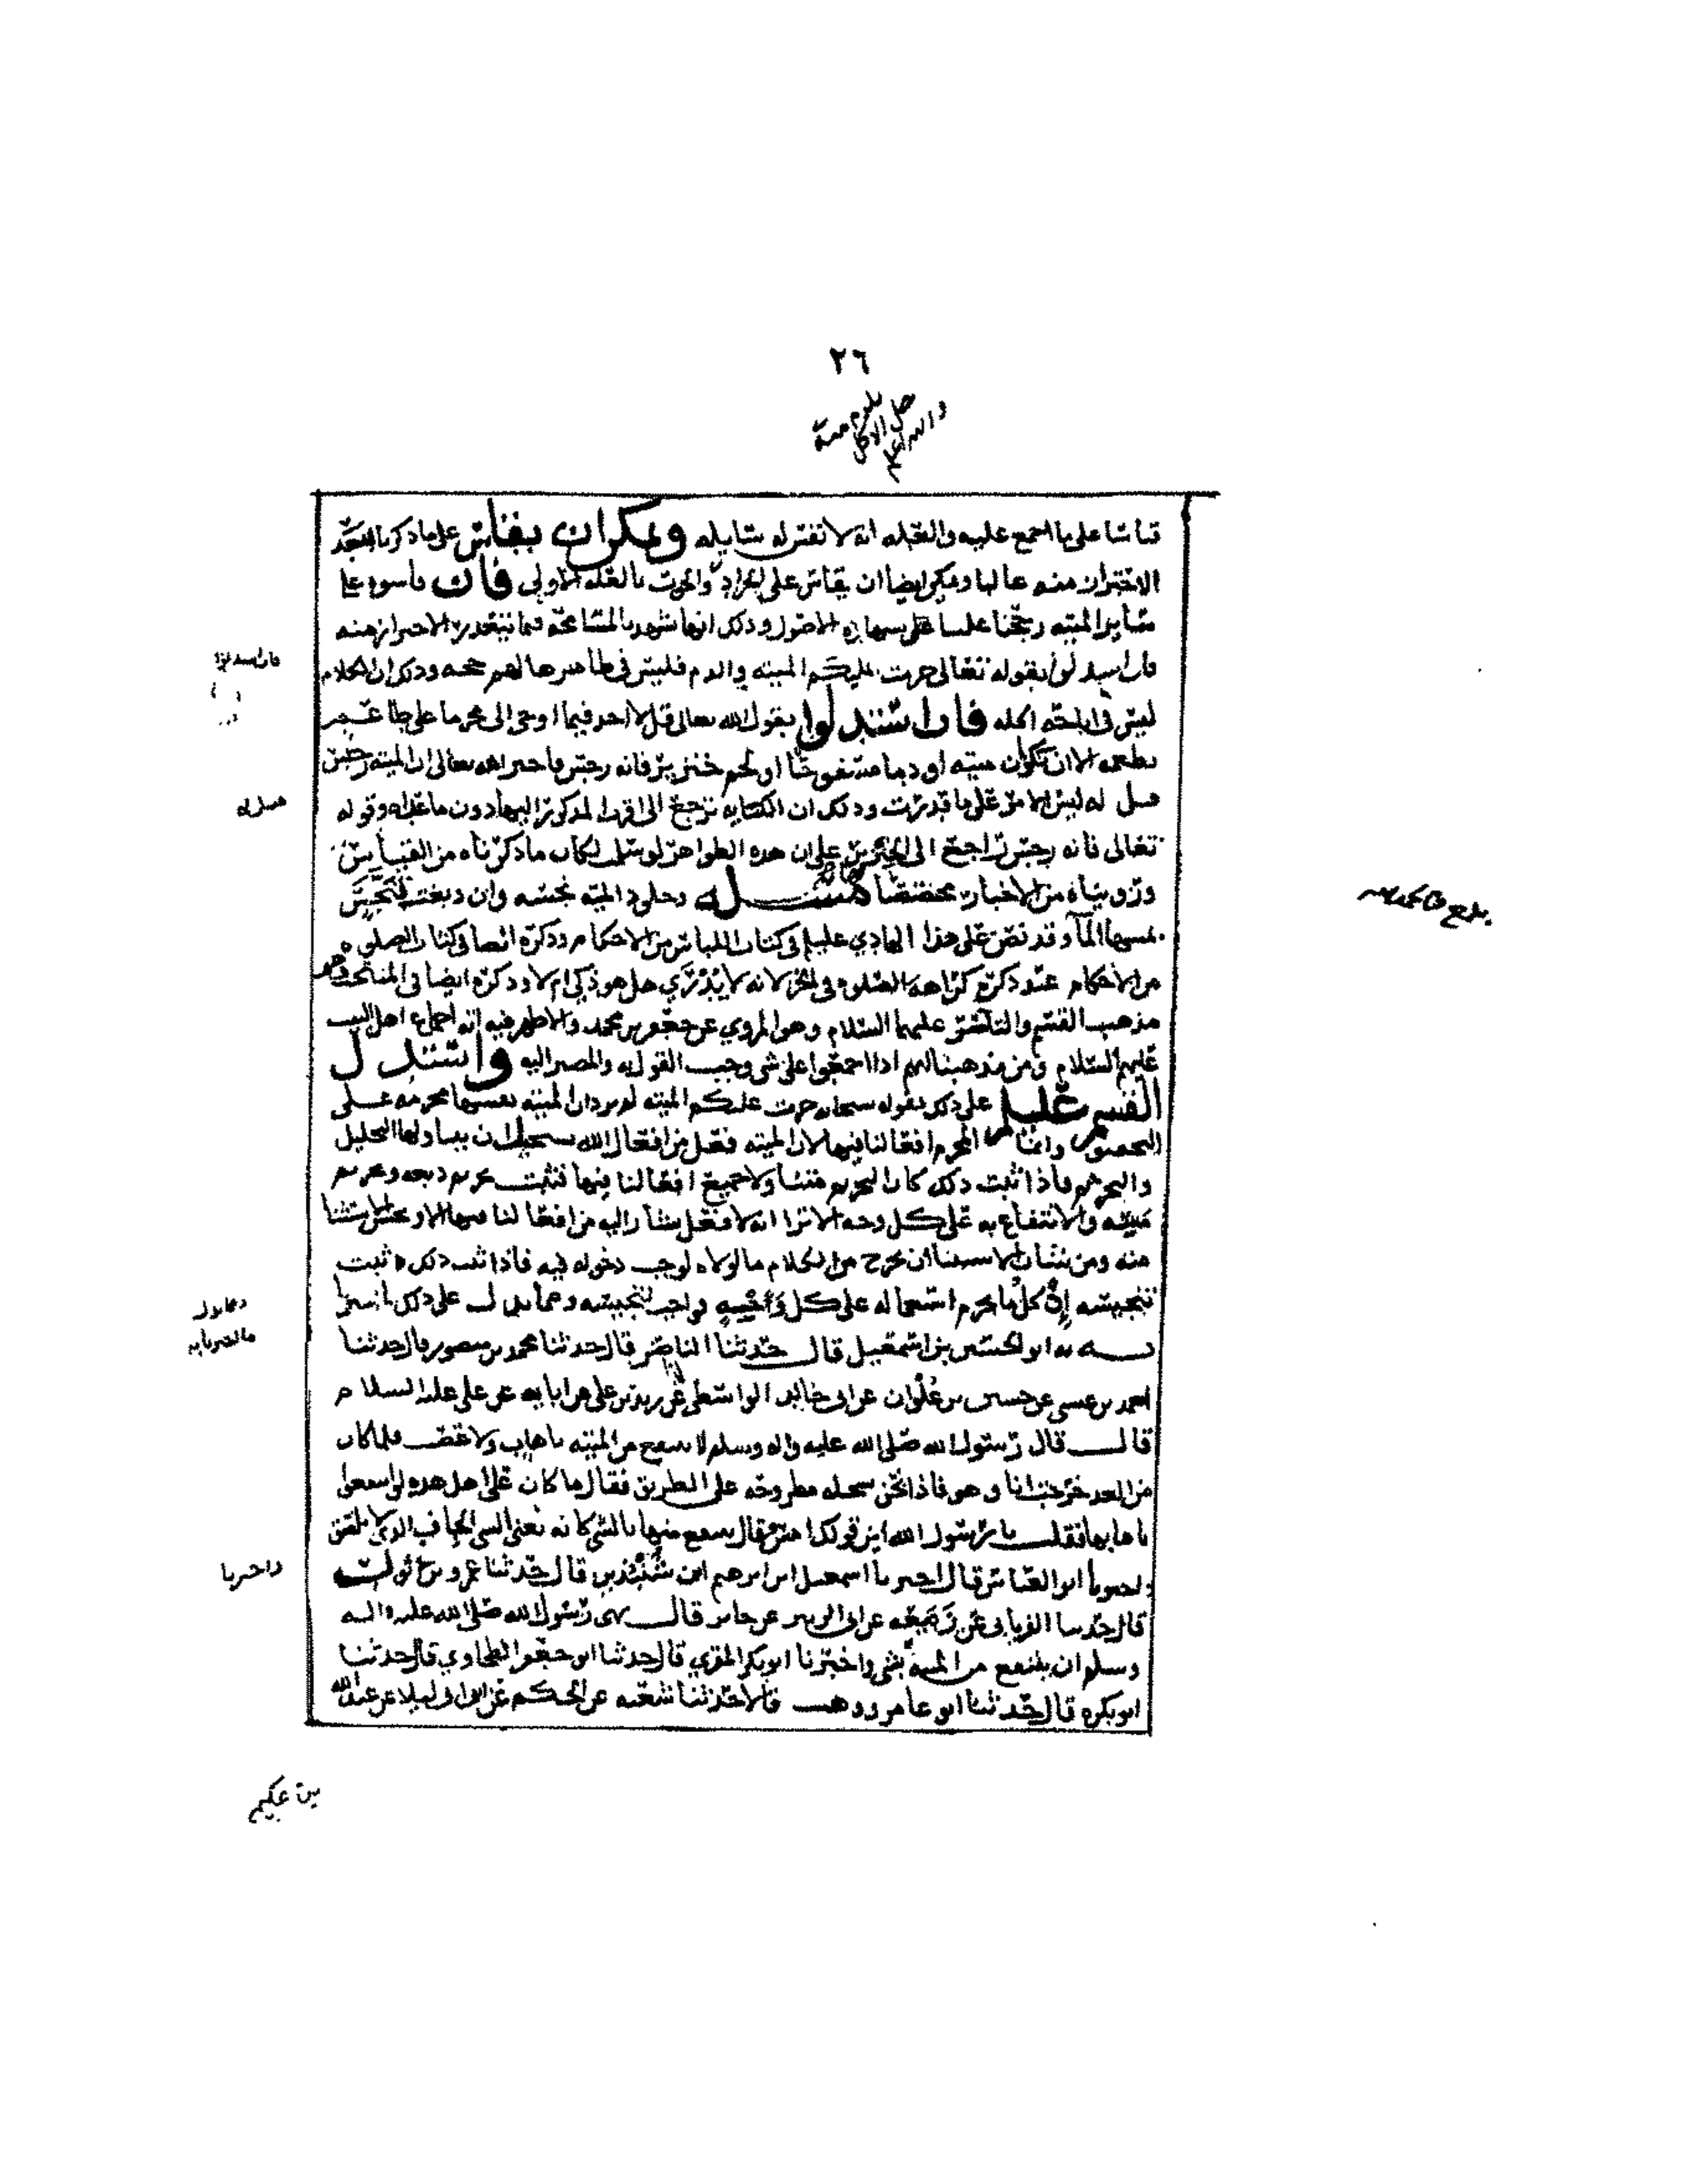 ٢٦
قياسا على ما اجمع عليه والعله انه لا نفس له سايله ويمكن ان يقاس على ما ذكرنا لتعذر
الاحتراز منه غالبا ويمكن ايضا ان يقاس على الجراد والحوت بالعله الاولى فان قاسوه على
ساير الميته رجحنا علينا على سبهها الاصول وذلك انها تشهد بالمسامحة فيما يتعذر الاحتراز منه
فان استدلوا بقوله تعالى حرمت عليكم الميته والدم فليس في ظاهرها لهم حجه وذلك ان الكلام
ليس في اباحة اكله فان استدلوا بقول الله تعالى قل لا اجد فيما اوحي الى محرما على طاعم
يطعمه الا ان تكون ميته او دما مسفوحا او لحم خنزير فانه رجس فاخبر الله تعالى ان الميته رجس
قيل له ليس الامر على ما قدرت وذلك ان الكنايه ترجع الى اقرب المذكور اليها دون ما عداه وقوله
تعالى فانه رجس راجع الى الخنزير على ان هذه الظواهر لو سلمت لكان ما ذكرناه من القياس
ورويناه من الاخبار مخصصا لها مسئلة وجلود الميته نجسه وان دبغت فتنجس
بمسها المآ وقد نص على هذا الهادي عليلم في كتاب اللباس من الاحكام وذكره ايضا في كتاب الصلوه
من الاحكام عند ذكره كراهة الصلوه في الخز لانه لا يدرى هل هو ذكي ام لا وذكره ايضا في المنتخب وهو
مذهب القسم والناصر عليهما السلام وهو المروي عن جعفر بن محمد والاظهر فيه انه اجماع اهل البيت
عليهم السلام ومن مذهبنا انهم اذا اجمعوا على شي وجب القول به والمصير اليه واستدل
القسم عليلم على ذلك بقوله سبحانه حرمت عليكم الميته لم يرد ان الميته نفسها محرمه على
وانما المحرم افعالنا فيها لان الميته فعل من افعال الله يستحيل ان يتناولها التحليل
والتحريم فاذا ثبت ذلك كان التحريم متناولا جميع افعالنا فيها فثبت تحريم دبغه وتحريم
والانتفاع به على كل وجه الا ترا انه لا فعل يشار اليه من افعالنا فيها الا ويحسن الاستثنا
منه ومن شان الاستثنا ان يخرج من الكلام ما لولاه لوجب دخوله فيه فاذا ثبت ذلك ثبت
تنجيسه إن كل ما يحرم استعماله على كل وجه فواجب تنجيسه ومما يدل على ذلك ما اخبرنا
به ابو الحسين بن اسمعيل قال حدثنا الناصر قال حدثنا محمد بن منصور قال حدثنا
احمد بن عيسى عن حسين بن علوان عن ابي خالد الواسطي عن زيد بن علي عن ابايه عن علي عليه السلام
قال قال رسول الله صلى الله عليه واله وسلم لا ينتفع من الميته باهاب ولا عصب فلما كان
من الغد خرجت انا وهو فاذا نحن بسخله مطروحه على الطريق فقال ما كان على اهل هذه لو انتفعوا
باهابها فقلت يا رسول الله اين قولك امس قال ينتفع منها بالشي كانه يعني الشي الجاف الذي لا يلصق
واخبرنا ابو العباس قال اخبرنا اسمعيل ابن ابرهيم ابن قال حدثنا عمرو بن ثور
قال حدثنا الفريابي عن زمعه عن ابي الزبير عن جابر قال نهى رسول الله صلى الله عليه واله
وسلم ان ينتفع من الميته بشي واخبرنا ابو بكر المقري قال حدثنا ابو جعفر الطحاوي قال حدثنا
ابو بكره قال حدثنا ابو عامر ووهب قالا حدثنا شعبه عن الحكم عن ابن ابي ليلا عن عبد الله
بن عكيم